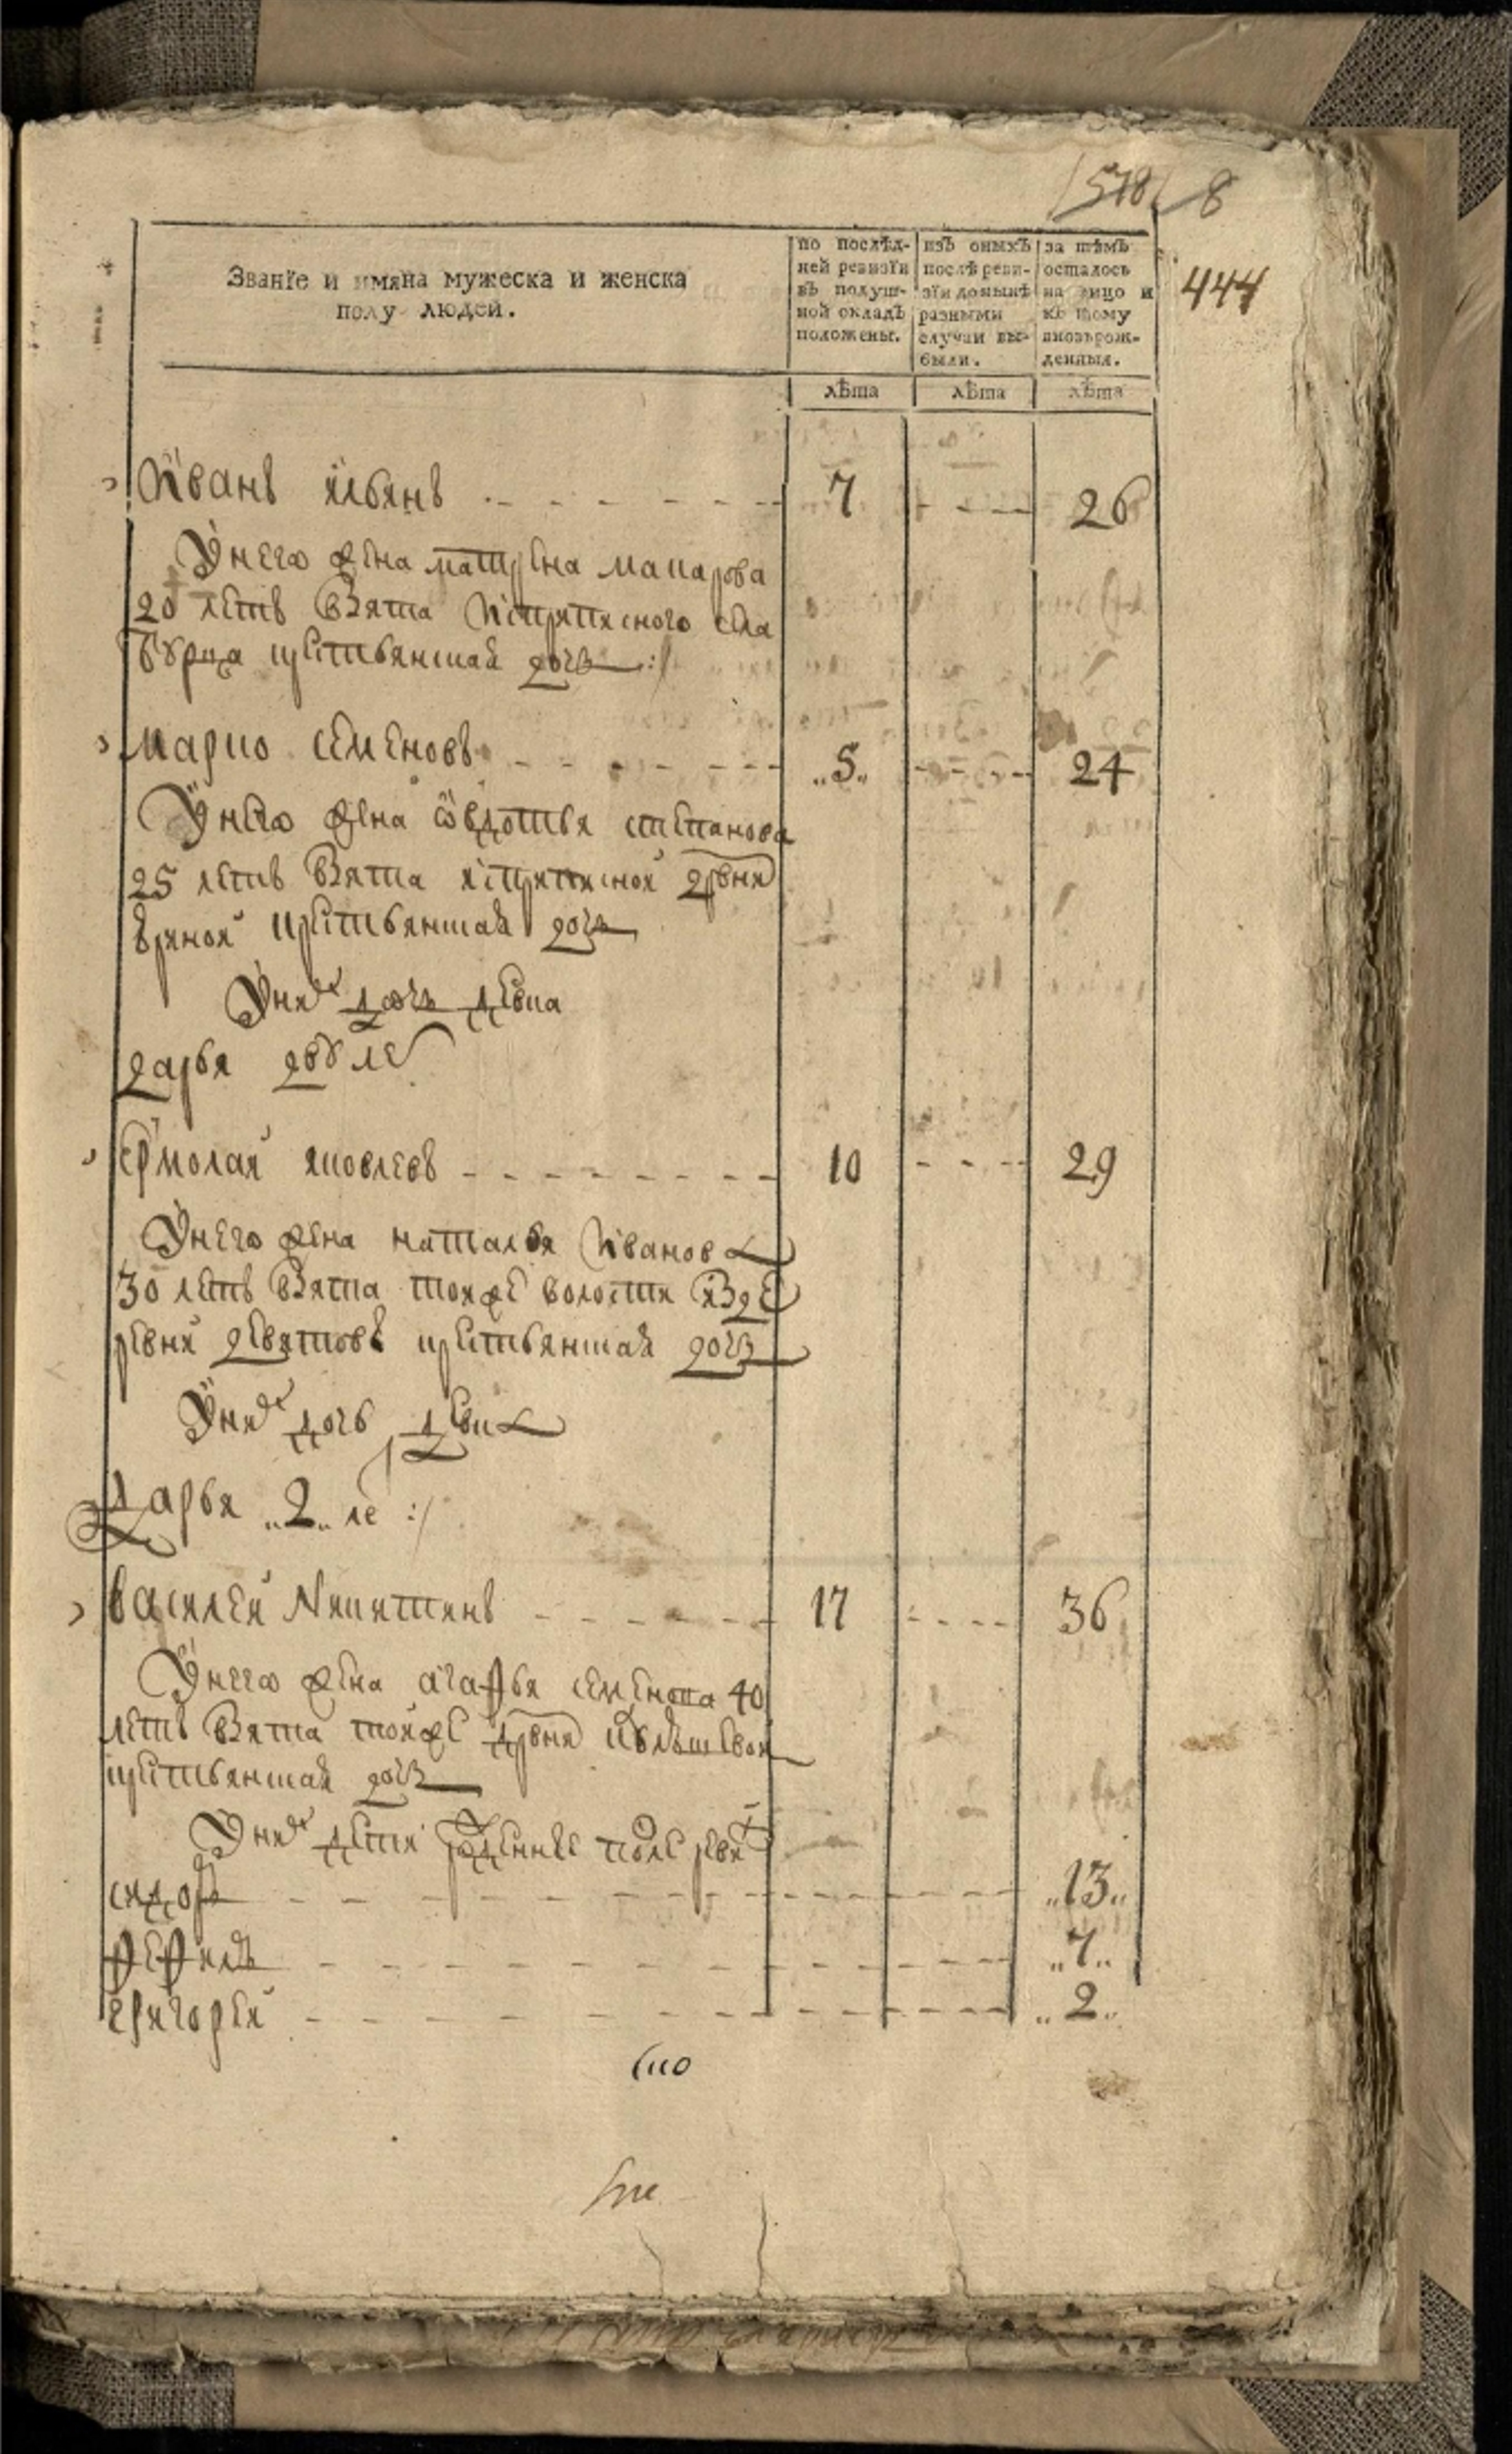 578 8
444
Званїе и имяна мужеска и женска
полу людей.
по послѣд-
ней ревизїи
въ подуш-
ной окладъ
положены.
изъ оныхъ
послѣ реви-
зїи до нынѣ
разными
случаи вы-
были.
за тѣмъ
осталось
на лицо и
къ тому
вновь рож-
денныя.
лѣта лѣта лѣта
Иванъ ильинъ 7 26
У него жена матрена макарова
20 летъ взята села
крестьянская дочь
марко семеновъ 5 24
У него жена овдотья степанова
25 летъ взята дрвни
крестьянская дочь
У них дочь девка
дарья ле
ермолай яковлевъ 10 29
У него жена наталья Иванова
30 летъ взята тояже волости из де
ревни девятовъ крестьянская дочь
У них дочь девка
Дарья 2 ле
василей Никитинъ 17 36
У него жена агафья семенова 40
летъ взята тойже дрвни
крестьянская дочь
У них дети рожденные после реви
сидоръ 13
фефилъ 7
григорей 2